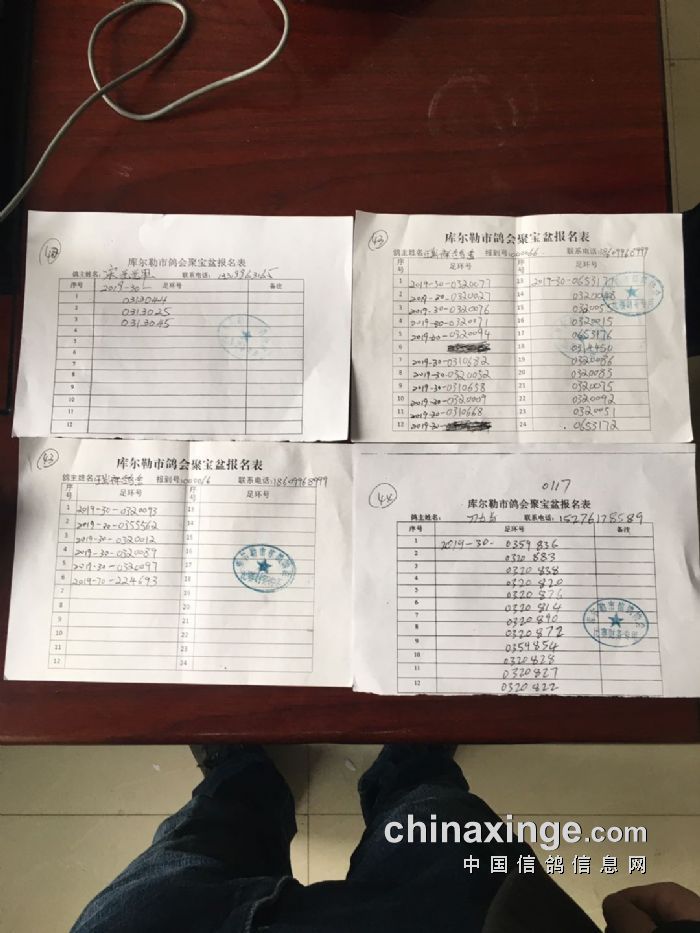 库尔勒市鸽会聚宝盆报名表
鸽主姓名: 联系电话:
序号 足环号 备注
2019-30-
1 0313044
2 0313025
3 0313045
4
5
6
7
8
9
10
11
12
43
库尔勒市鸽会聚宝盆报名表
鸽主姓名 报到号 联系电话:
序号 足环号 序号 足环号
1 2019-30-0320077 13 2019-30-0653177
2 2019-30-0320027 14
3 2019-30-0320076 15
4 2019-30-0320071 16 0320015
5 2019-30-0320094 17 0653176
6 18
7 2019-30-0310682 19 0320086
8 2019-30-0320032 20 0320085
9 2019-30-0310658 21 0320075
10 2019-30-0320009 22 0320092
11 2019-30-0310668 23 0320051
12 2019-30- 24 0653172
43
库尔勒市鸽会聚宝盆报名表
鸽主姓名 报到号 联系电话:18609968999
序号 足环号 序号 足环号
1 2019-30-0320093 13
2 2019-30-0355562 14
3 2019-30-0320012 15
4 2019-30-0320089 16
5 2019-30-0320097 17
6 2019-30-224693 18
7 19
8 20
9 21
10 22
11 23
12 24
0117
44
库尔勒市鸽会聚宝盆报名表
鸽主姓名: 联系电话:15276178589
序号 足环号 备注
1 2019-30-0359836
2 0320883
3 0320838
4 0320820
5 0320876
6 0320814
7 0320890
8 0320872
9 0359854
10 0320828
11 0320827
12 0320822
chinaxinge.com
中国信鸽信息网